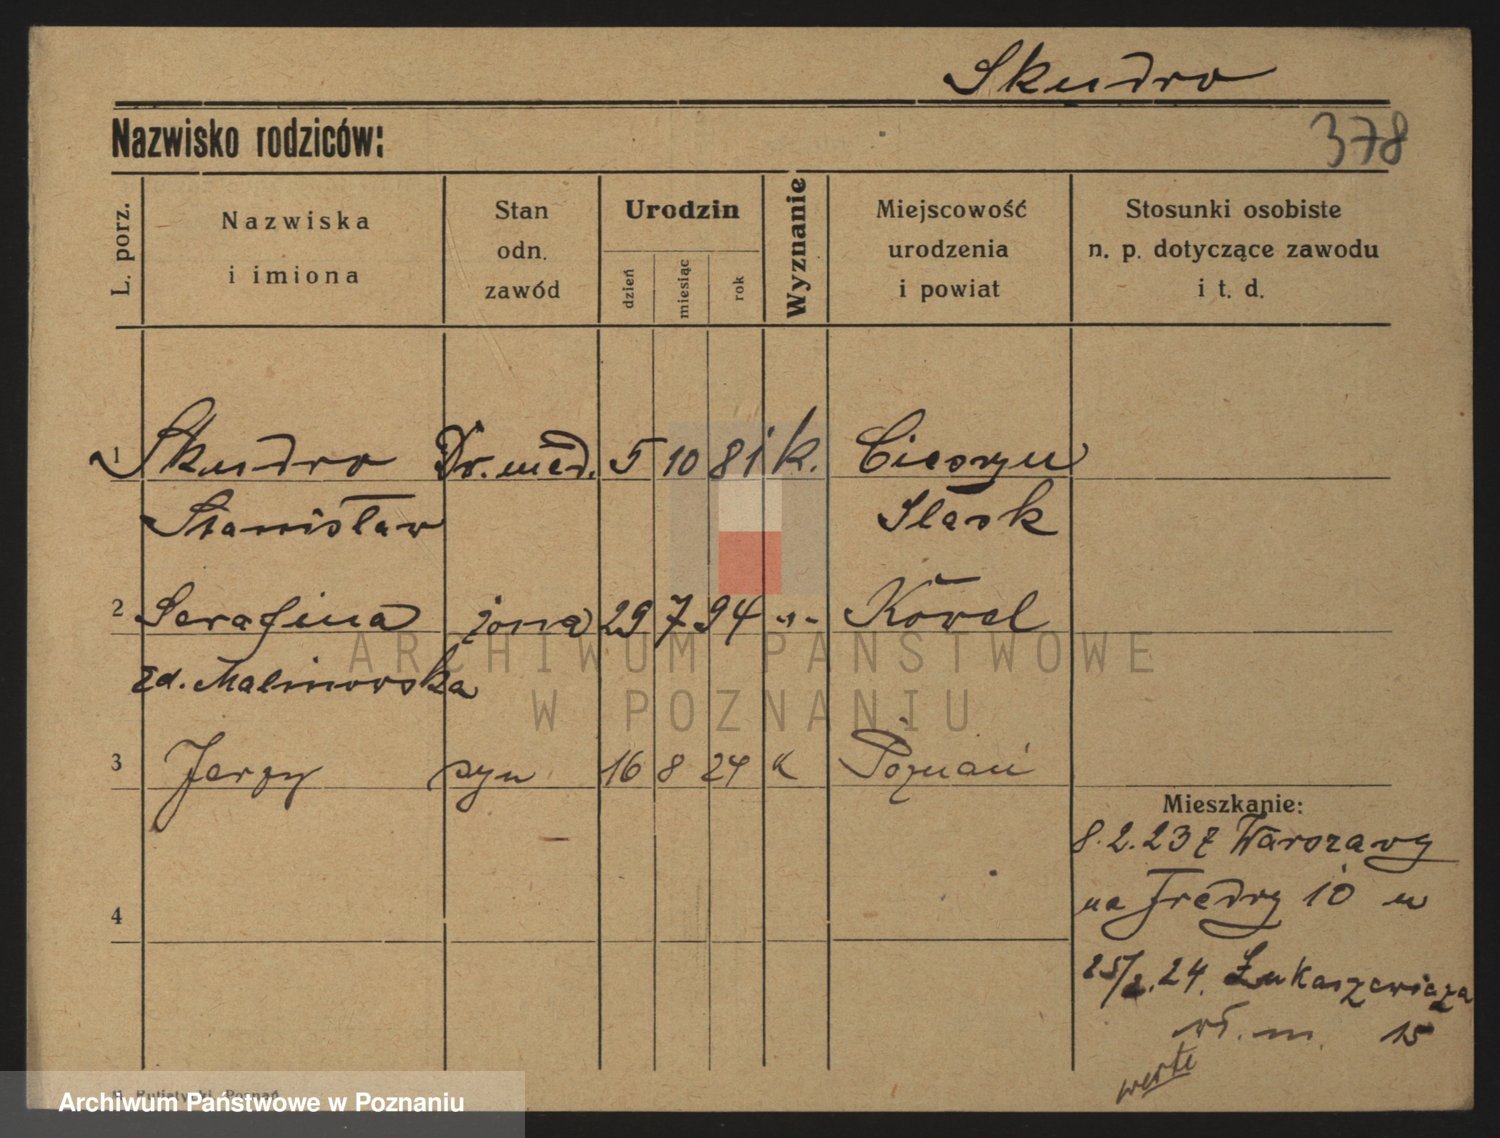 Skudro
Nazwisko rodziców:
378
L. porz.
Nazwiska
i imiona
Stan
odn.
zawód
Urodzin
dzień
miesiąc
rok
Wyznanie
Miejscowość
urodzenia
i powiat
Stosunki osobiste
n. p. dotyczące zawodu
i t. d.
1 Skudro Dr. med. 5 10 81 k. Cieszyn
Stanisław Śląsk
2 Serafina żona 29 7 94 -"- Kowel
zd. Malinowska
ARCHIWUM PAŃSTWOWE
W POZNANIU
3 Jerzy syn 16 8 24 k Poznań
Mieszkanie:
8.2.23 z Warszawy
na Fredry 10 u
4
25/2.24. Łukaszewicza
wł. m. 15
verte
Archiwum Państwowe w Poznaniu